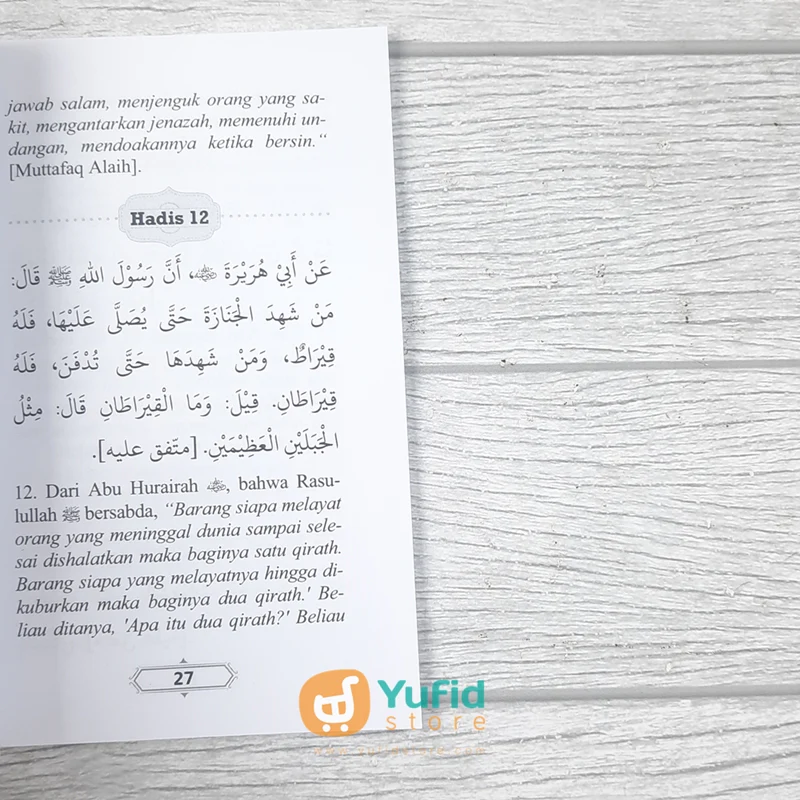 jawab salam, menjenguk orang yang sa-
kit, mengantarkan jenazah, memenuhi un-
dangan, mendoakannya ketika bersin.“
[Muttafaq Alaih].
Hadis 12
عَنْ أَبِيْ هُرَيْرَةَ ﵁، أَنَّ رَسُوْلَ اللهِ ﷺ قَالَ:
مَنْ شَهِدَ الْجَنَازَةَ حَتَّى يُصَلَّى عَلَيْهَا، فَلَهُ
قِيْرَاطٌ، وَمَنْ شَهِدَهَا حَتَّى تُدْفَنَ، فَلَهُ
قِيْرَاطَانِ. قِيْلَ: وَمَا الْقِيْرَاطَانِ قَالَ: مِثْلُ
الْجَبَلَيْنِ الْعَظِيْمَيْنِ. [متّفق عليه].
12. Dari Abu Hurairah ﵁, bahwa Rasu-
lullah ﷺ bersabda, “Barang siapa melayat
orang yang meninggal dunia sampai sele-
sai dishalatkan maka baginya satu qirath.
Barang siapa yang melayatnya hingga di-
kuburkan maka baginya dua qirath.' Be-
liau ditanya, 'Apa itu dua qirath?' Beliau
27
Yufid
store